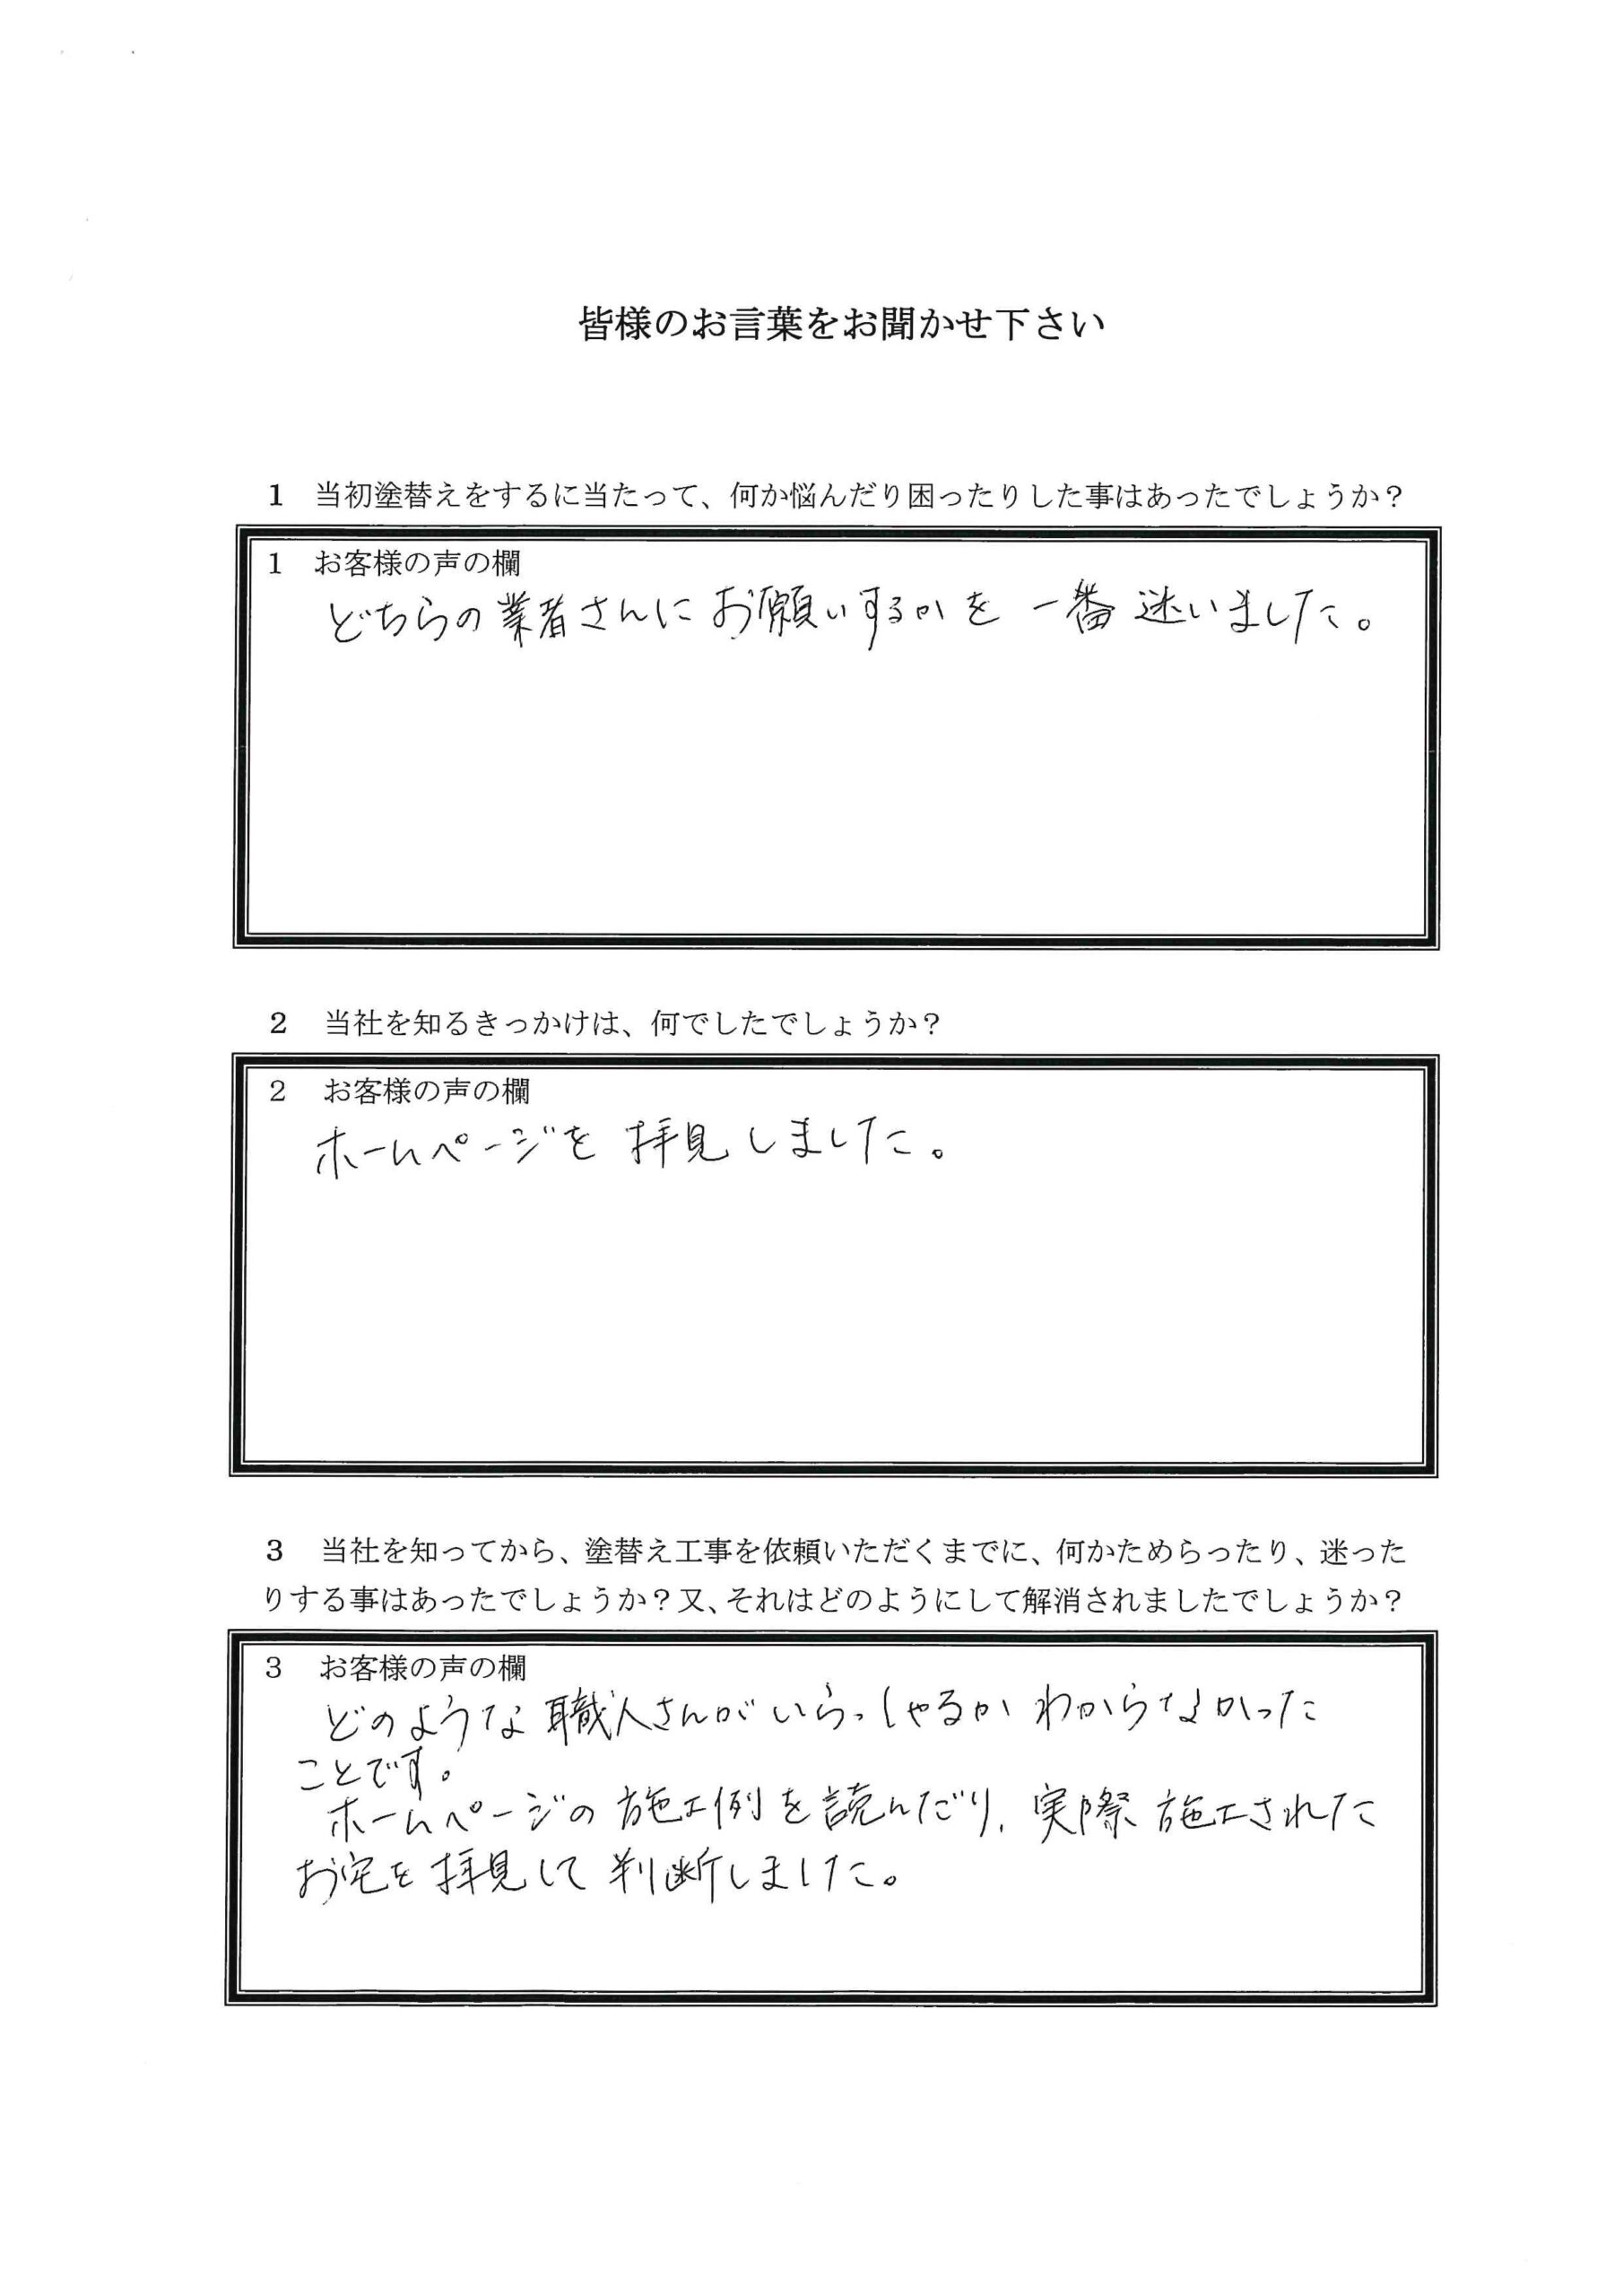 皆様のお言葉をお聞かせ下さい
1 当初塗替えをするに当たって、何か悩んだり困ったりした事はあったでしょうか?
1 お客様の声の欄
どちらの業者さんにお願いするかを一番迷いました。
2 当社を知るきっかけは、何でしたでしょうか?
2 お客様の声の欄
ホームページを拝見しました。
3 当社を知ってから、塗替え工事を依頼いただくまでに、何かためらったり、迷った
りする事はあったでしょうか?又、それはどのようにして解消されましたでしょうか?
3 お客様の声の欄
どのような職人さんがいらっしゃるかわからなかった
ことです。
ホームページの施工例を読んだり、実際施工された
お宅を拝見して判断しました。